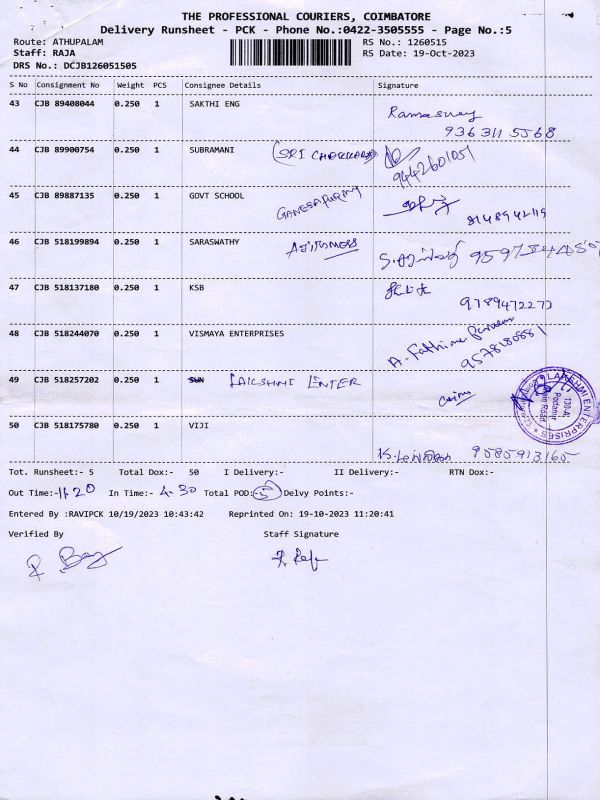 THE PROFESSIONAL COURIERS, COIMBATORE
Delivery Runsheet - PCK - Phone No.:0422-3505555 - Page No.:5
Route: ATHUPALAM RS No.: 1260515
Staff: RAJA RS Date: 19-Oct-2023
DRS No.: DCJB126051505
S No Consignment No Weight PCS Consignee Details Signature
43 CJB 89408044 0.250 1 SAKTHI ENG Ramaswamy
9363115568
44 CJB 89900754 0.250 1 SUBRAMANI 9442601051
45 CJB 89887135 0.250 1 GOVT SCHOOL GANESAPURAM
46 CJB 518199894 0.250 1 SARASWATHY
47 CJB 518137180 0.250 1 KSB
9789472273
48 CJB 518244070 0.250 1 VISMAYA ENTERPRISES A. Fathima
9578180881
49 CJB 518257202 0.250 1 SUN LAKSHMI ENTER
LAKSHMI ENTERPRISES
50 CJB 518175780 0.250 1 VIJI
9585913165
Tot. Runsheet:- 5 Total Dox:- 50 I Delivery:- II Delivery:- RTN Dox:-
Out Time:- 11.20 In Time:- 4.30 Total POD:- 5 Delvy Points:-
Entered By :RAVIPCK 10/19/2023 10:43:42 Reprinted On: 19-10-2023 11:20:41
Verified By Staff Signature